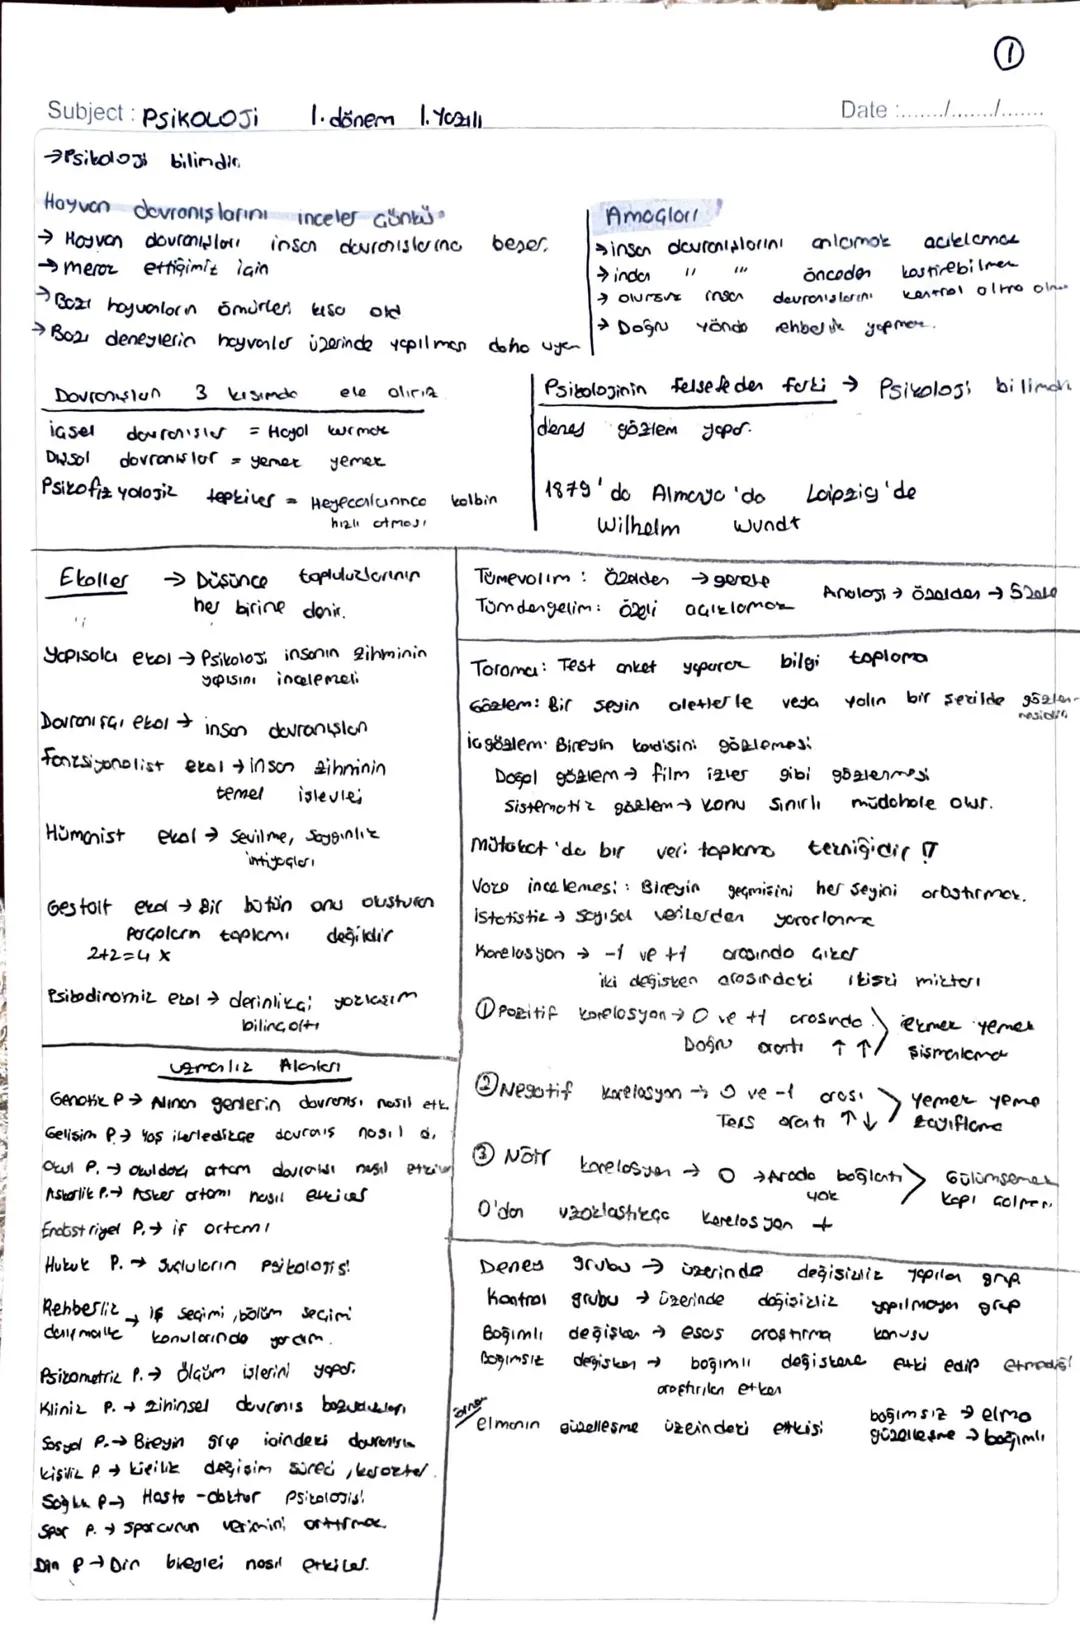 ①
Subject : PSiKOLOJi 1. dönem 1. Yazılı
Date :......./......./.......
→Psikoloji bilimdir.
Hayvan davranışlarını inceler Çünkü
→ Hayvan davranışları insan davranışlarına benzer.
→ merak ettiğimiz için
→ Bazı hayvanların ömürleri kısa old
→ Bazı deneylerin hayvanlar üzerinde yapılması daha uygun
Amaçları
→ insan davranışlarını anlamak açıklamak
→ insan " " önceden kestirebilmek
→ olursuz insan davranışlarını kontrol altına alma
→ Doğru yönde rehberlik yapmak.
Davranışları 3 kısımda ele alırız
içsel davranışlar = Hayal kurmak
Dışsal davranışlar = yemek yemek
Psikofizyolojik tepkiler = Heyecanlanınca kalbin
hızlı atması
Psikolojinin felsefeden farkı → Psikoloji bilimdir
deney gözlem yapar.
1879'da Almanya'da Leipzig'de
Wilhelm Wundt
Ekoller → Düşünce topluluklarının
her birine denir.
Yapısalcı ekol → Psikoloji insanın zihninin
yapısını incelemeli
Davranışçı ekol → insan davranışları
fonksiyonalist ekol → insan zihninin
temel işlevleri
Hümanist ekol → Sevilme, Saygınlık
ihtiyaçları
Gestalt ekol → Bir bütün onu oluşturan
parçaların toplamı değildir
2+2=4 X
Psikodinamik ekol → derinlikçi yaklaşım
bilinçaltı
Uzmanlık Alanları
Genetik P → Alınan genlerin davranışı nasıl etk.
Gelişim P. → Yaş ilerledikçe davranış nasıl d.
Okul P. → okuldaki ortam davranışı nasıl etkiler
Askerlik P. → Asker ortamı nasıl etkiler
Endüstriyel P. → iş ortamı
Hukuk P. → Suçluların Psikolojisi
Rehberlik → iş seçimi, bölüm seçimi
danışmanlık konularında yardım.
Psikometrik P. → Ölçüm işlerini yapar.
Klinik P. → zihinsel davranış bozuklukları
Sosyal P. → Bireyin grup içindeki davranışı
kişilik P → kişilik değişim süreci, karakter.
Sağlık P → Hasta - doktor psikolojisi
Spor P. → sporcunun verimini arttırmak.
Din P → Din bireyleri nasıl etkiler.
Tümevarım : Özelden → genele
Tümdengelim : özeli açıklamak
Analoji → özelden → özele
Tarama : Test anket yaparak bilgi toplama
Gözlem : Bir şeyin aletlerle veya yalın bir şekilde gözlen-
mesidir.
iç gözlem: Bireyin kendisini gözlemesi
Doğal gözlem → film izler gibi gözlenmesi
Sistematik gözlem → konu sınırlı müdahale olur.
Mülakat'da bir veri toplama tekniğidir !!
Vaka incelemesi : Bireyin geçmişini her şeyini araştırmak.
istatistik → sayısal verilerden yararlanma
Korelasyon → -1 ve +1 arasında çıkar
iki değişken arasındaki ilişki miktarı
① Pozitif korelasyon → 0 ve +1 arasında
Doğru orantı ↑ ↑
ekmek yemek
şişmanlama
② Negatif korelasyon → 0 ve -1 arası
Ters orantı ↑ ↓
yemek yeme
zayıflama
③ Nötr korelasyon → 0 → Arada bağlantı
yok
Gülümsemek
kapı çalması
0'dan uzaklaştıkça korelasyon +
Deney grubu → üzerinde değişiklik yapılan grup
Kontrol grubu → üzerinde değişiklik yapılmayan grup
Bağımlı değişken → esas araştırma konusu
Bağımsız değişken → bağımlı değişkene etki edip etmediği
araştırılan etken
örnek
elmanın güzelleşme üzerindeki etkisi
bağımsız → elma
güzelleşme → bağımlı